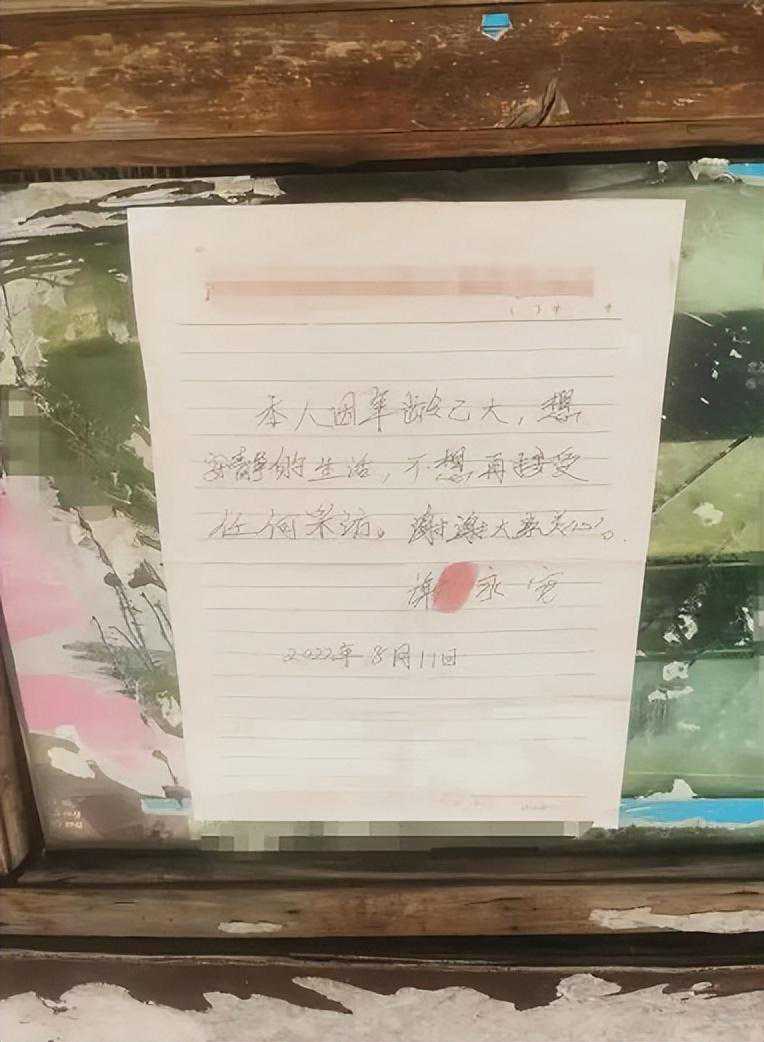 本人因年龄已大，想
安静的生活，不想再接受
任何采访。谢谢大家关心。
永宽
2022年8月11日